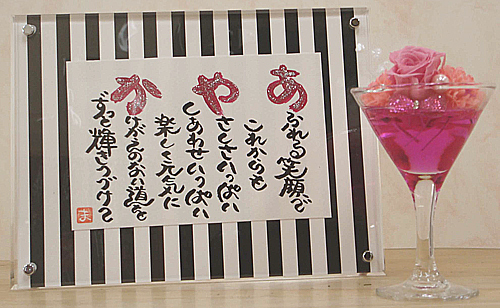 あふれる笑顔で
これからも
さらさいっぱい
しあわせいっぱい
やさしく元気に
かけがえのない道を
ずっと輝きつづける
ま